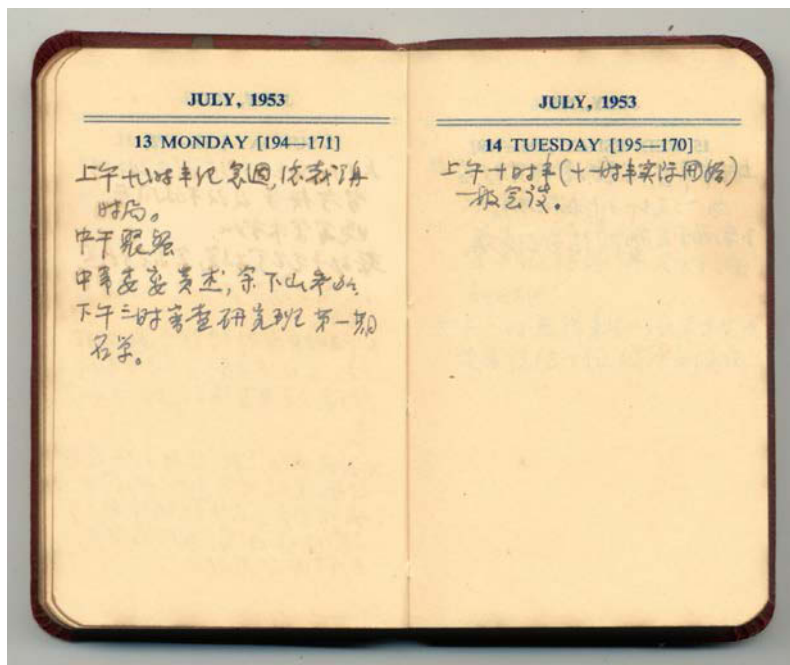 JULY, 1953
13 MONDAY [194—171]
上午九时半纪念週,
时局。
中午聚餐
下午三时审查研究班第一期
名单。
JULY, 1953
14 TUESDAY [195—170]
上午十时半(十一时半实际开始)
一般会议。